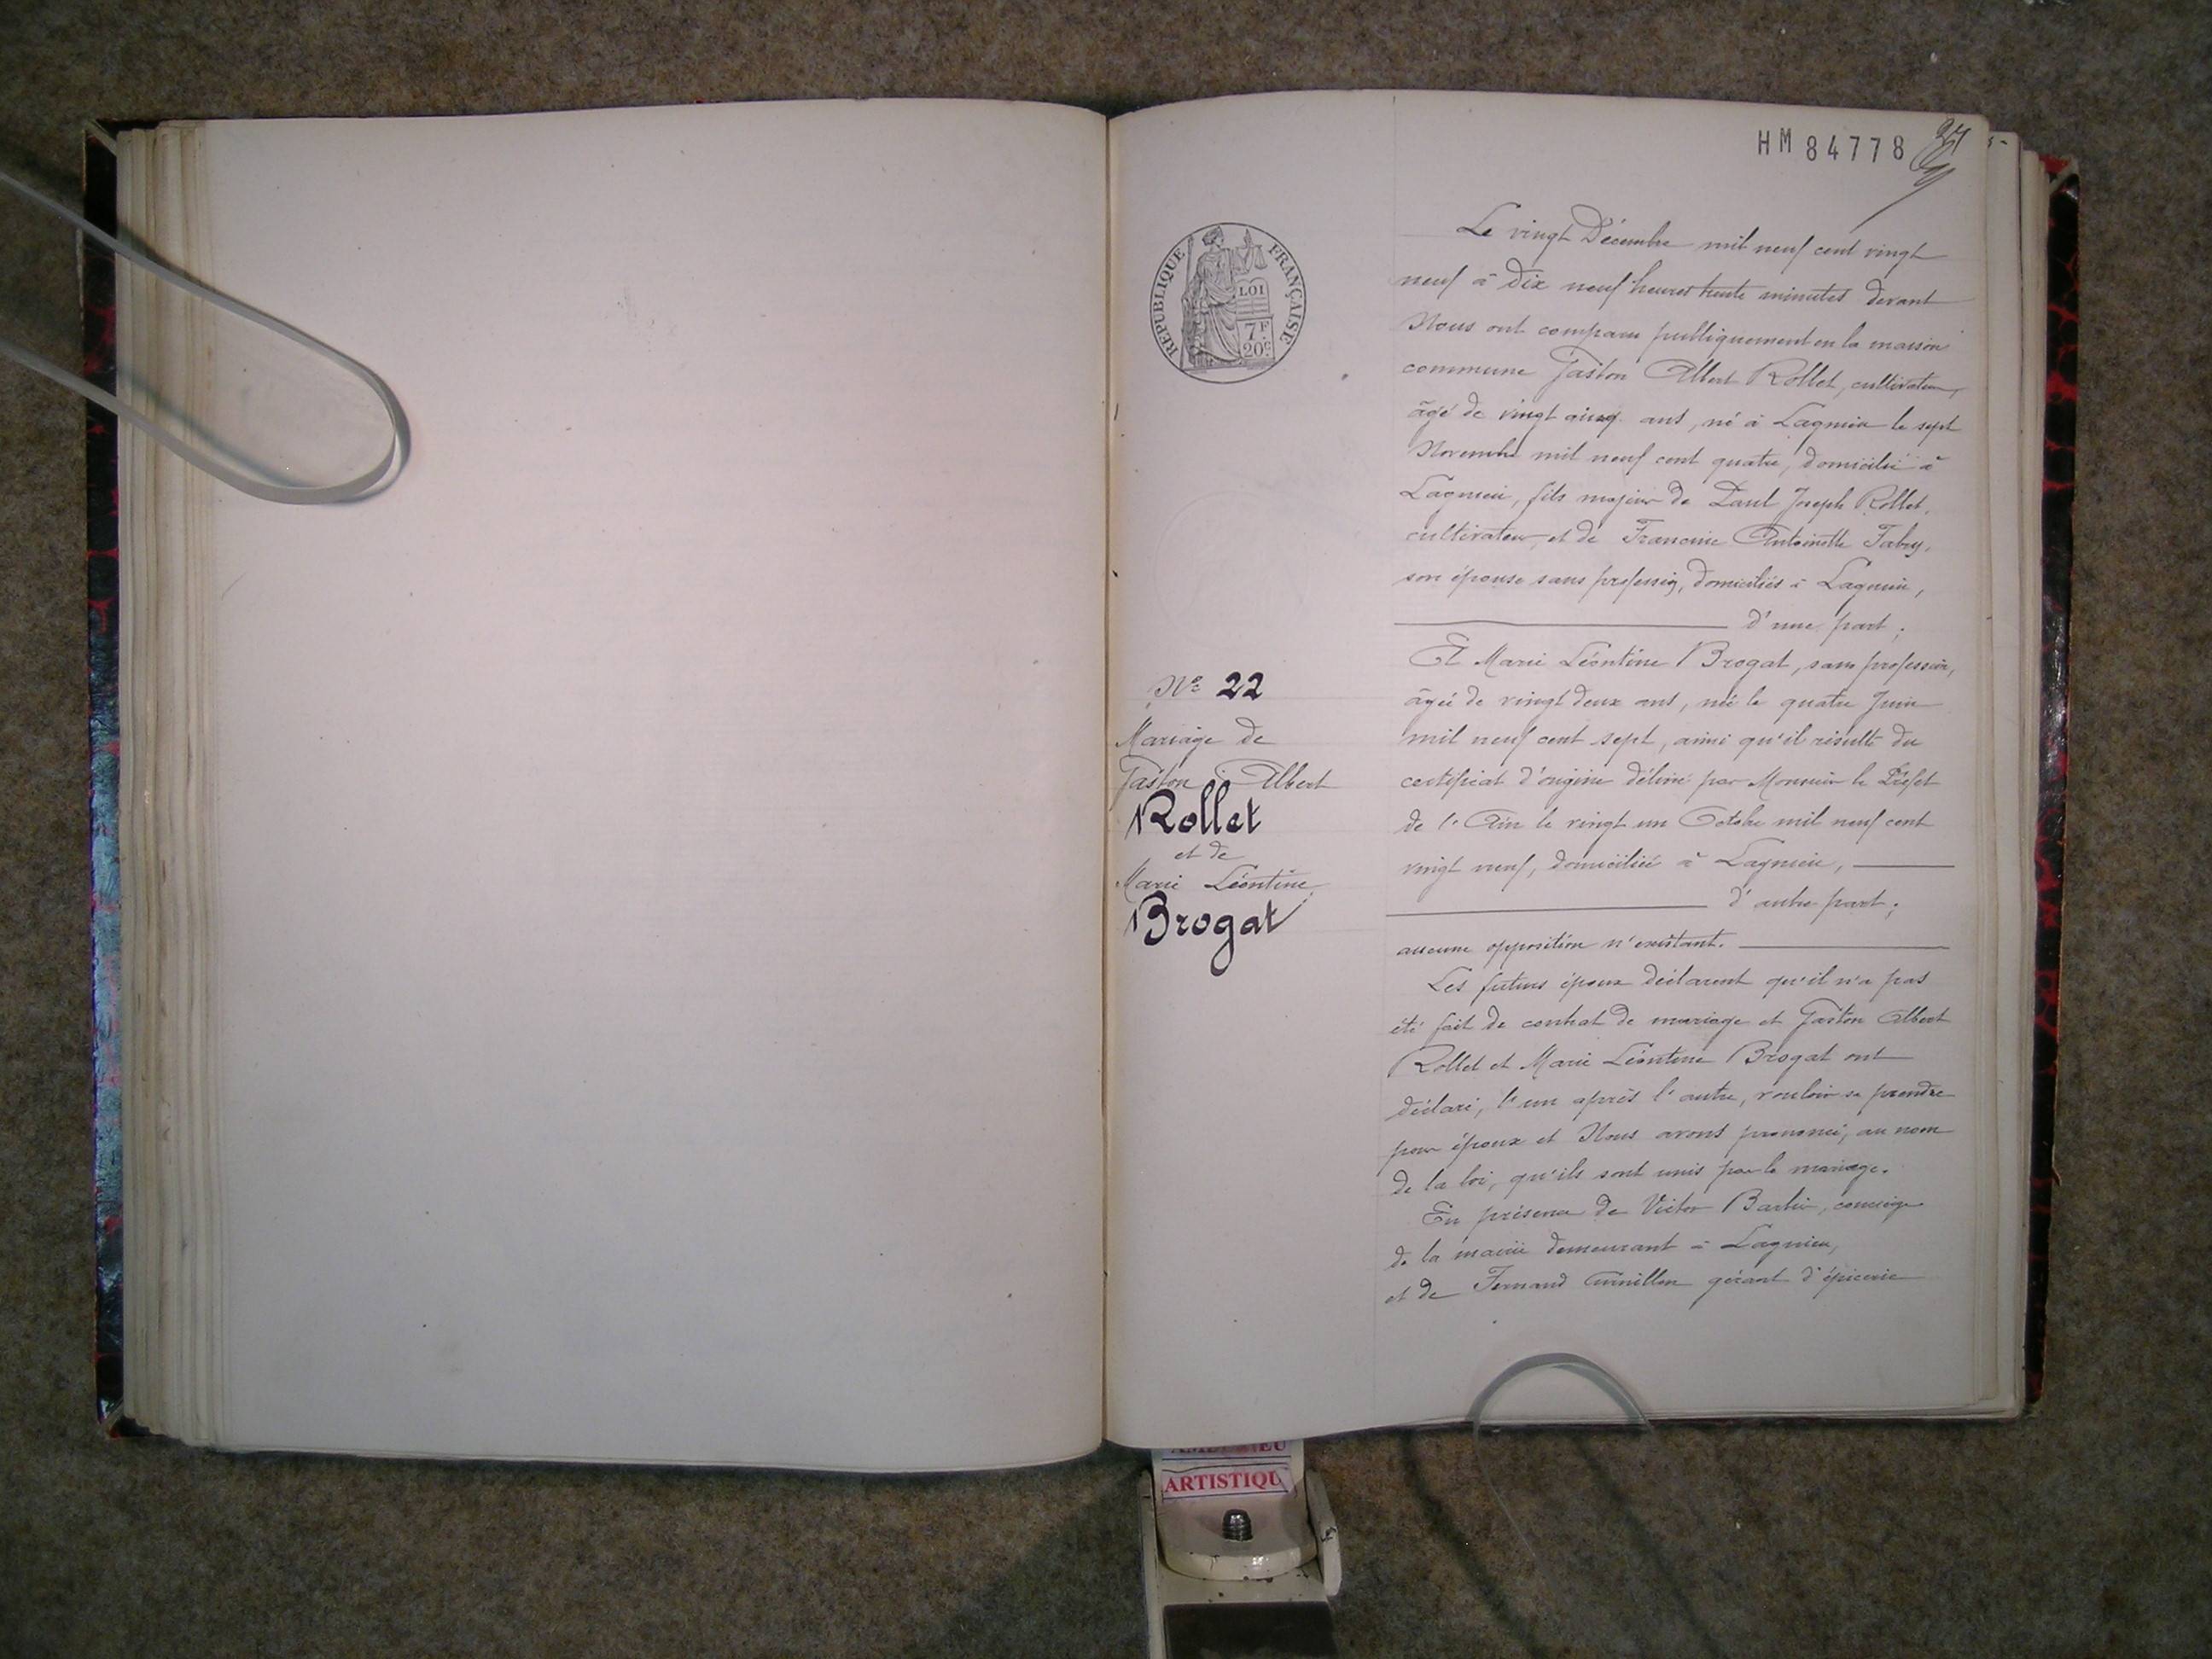 HM 84778
RÉPUBLIQUE FRANÇAISE
LOI
7F
20c
Le vingt Décembre mil neuf cent vingt
neuf à dix neuf heures trente minutes devant
Nous ont comparu publiquement en la maison
commune Gaston Albert Rollet, cultivateur,
âgé de vingt cinq ans, né à Lagnieu le sept
Novembre mil neuf cent quatre, domicilié à
Lagnieu, fils majeur de Paul Joseph Rollet,
cultivateur, et de Francine Antoinette Fabry,
son épouse sans profession, domiciliés à Lagnieu,
d'une part;
Et Marie Léontine Brogat, sans profession,
âgée de vingt deux ans, née le quatre Juin
mil neuf cent sept, ainsi qu'il résulte du
certificat d'origine délivré par Monsieur le Préfet
de l'Ain le vingt un Octobre mil neuf cent
vingt neuf, domiciliée à Lagnieu,
d'autre part;
aucune opposition n'existant.
Les futurs époux déclarent qu'il n'a pas
été fait de contrat de mariage et Gaston Albert
Rollet et Marie Léontine Brogat ont
déclaré, l'un après l'autre, vouloir se prendre
pour époux et Nous avons prononcé, au nom
de la loi, qu'ils sont unis par le mariage.
En présence de Victor concierge
de la mairie demeurant à Lagnieu,
et de Fernand gérant d'épicerie
No 22
Mariage de
Gaston Albert
Rollet
et de
Marie Léontine
Brogat
ARTISTIQU